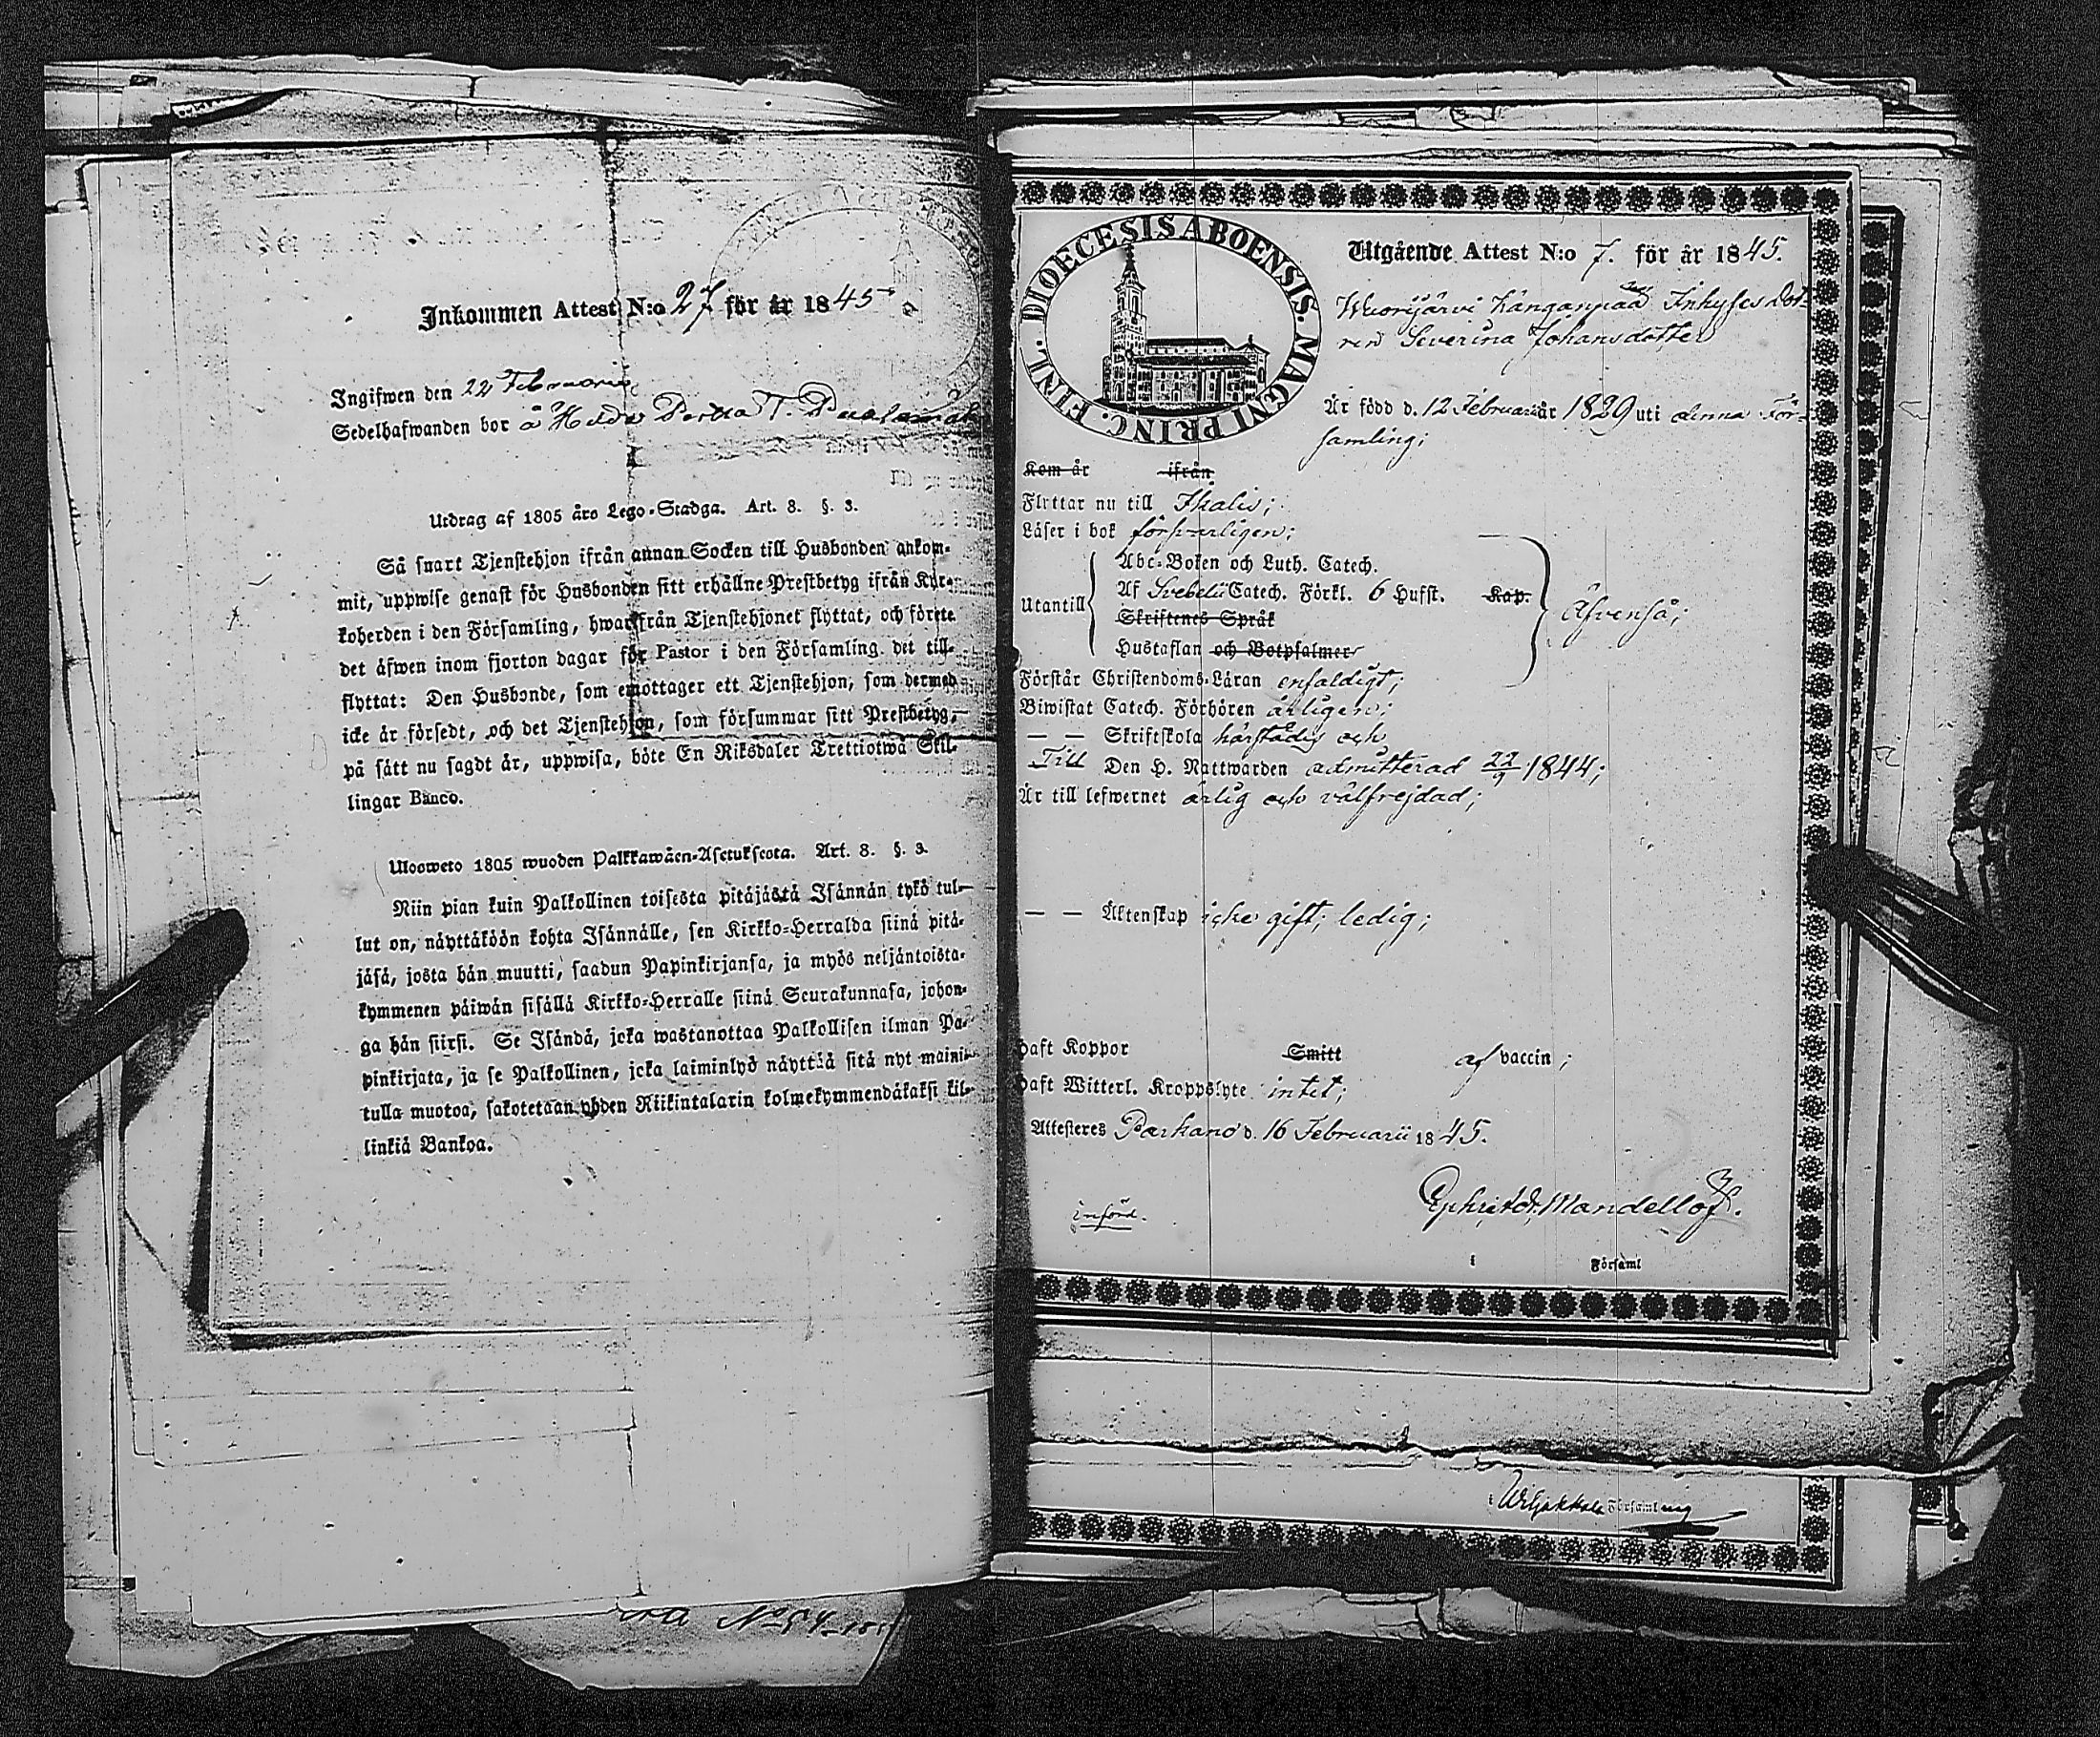 Inkommen Attest N:o 27 för år 1845
Ingifwen den 22 Februarii
Sedelhafwanden bor å
Utdrag af 1805 års Lego-Stadga. Art. 8. §. 3.
Så snart Tjenstehjon ifrån annan Socken till Husbonden ankom-
mit, uppwise genast för Husbonden sitt erhållne Prestbetyg ifrån Kyr-
koherden i den Församling, hwarifrån Tjenstehjonet flyttat, och förete
det äfwen inom fjorton dagar för Pastor i den Församling det till-
flyttat: Den Husbonde, som emottager ett Tjenstehjon, som dermed
icke är försedt, och det Tjenstehjon, som försummar sitt Prestbetyg,
på sätt nu sagdt är, uppwisa, böte En Riksdaler Trettiotwå Skil-
lingar Banco.
Ulosweto 1805 wuoden Palkkawäen-Asetuksesta. Art. 8. §. 3.
Niin pian kuin Palkollinen toisesta pitäjästä Isännän tykö tul-
lut on, näyttäköön kohta Isännälle, sen Kirkko-Herralda siinä pitä-
jäsä, josta hän muutti, saadun Papinkirjansa, ja myös neljäntoista-
kymmenen päiwän sisällä Kirkko-Herralle siinä Seurakunnasa, johon-
ga hän siirsi. Se Isändä, joka wastanottaa Palkollisen ilman Pa-
pinkirjata, ja se Palkollinen, joka laiminlyö näyttää sitä nyt mainit-
tulla muotoa, sakotetaan yhden Riikintalarin kolmekymmendäkaksi kil-
linkiä Bankoa.
N:o 54
DIOECESIS ABOENSIS. MAGNI PRINC. FINL.
Utgående Attest N:o 7. för år 1845.
Wuorijärvi Kangaspää Inhyses Dot-
ren Severina Johansdotter
Är född d. 12 Februarii år 1829 uti denna För-
samling;
Kom år ifrån
Flyttar nu till Ikalis;
Läser i bok försvarligen;
Utantill
Abc-Boken och Luth. Catech.
Af Svebelii Catech. Förkl. 6 Hufst. Kap.
Skriftenes Språk
Hustaflan och Botpsalmer
Äfvenså;
Förstår Christendoms-Läran enfaldigt;
Biwistat Catech. Förhören årligen;
— — Skriftskola härstädes och
Till Den H. Nattwarden admitterad 22/9 1844;
Är till lefwernet ärlig och välfrejdad;
— — Äktenskap icke gift; ledig;
Haft Koppor Smitt af vaccin;
Haft Witterl. Kroppslyte intet;
Attesteres Parkano d. 16 Februarii 1845.
Mandellöf.
införd.
i Församl
i Wiljakkala Församling